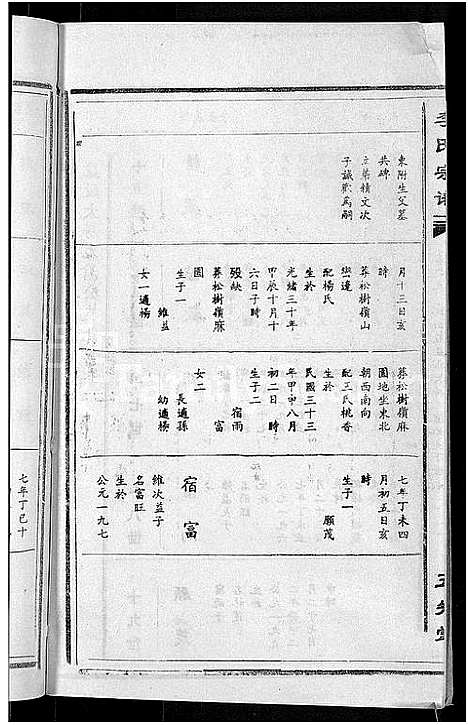 李氏宗譜
東附生父墓
共碑
立弟積文次
子誠歡爲嗣
月十三日亥
時
葬松樹嶺山
巒邊
配楊氏
生於
光緒三十年
甲辰十月十
六日子時
歿缺
葬松樹嶺麻
園
生子一
維益
女一適楊
葬松樹嶺麻
園地坐東北
朝西南向
配王氏桃香
生於
民國三十三
年甲申八月
初二日 時
生子二
宿雨
富
女二
長適孫
幼適楊
七年丁未四
月初五日亥
時
生子一
願茂
宿富
維次益子
名富旺
生於
公元一九七
七年丁巳十